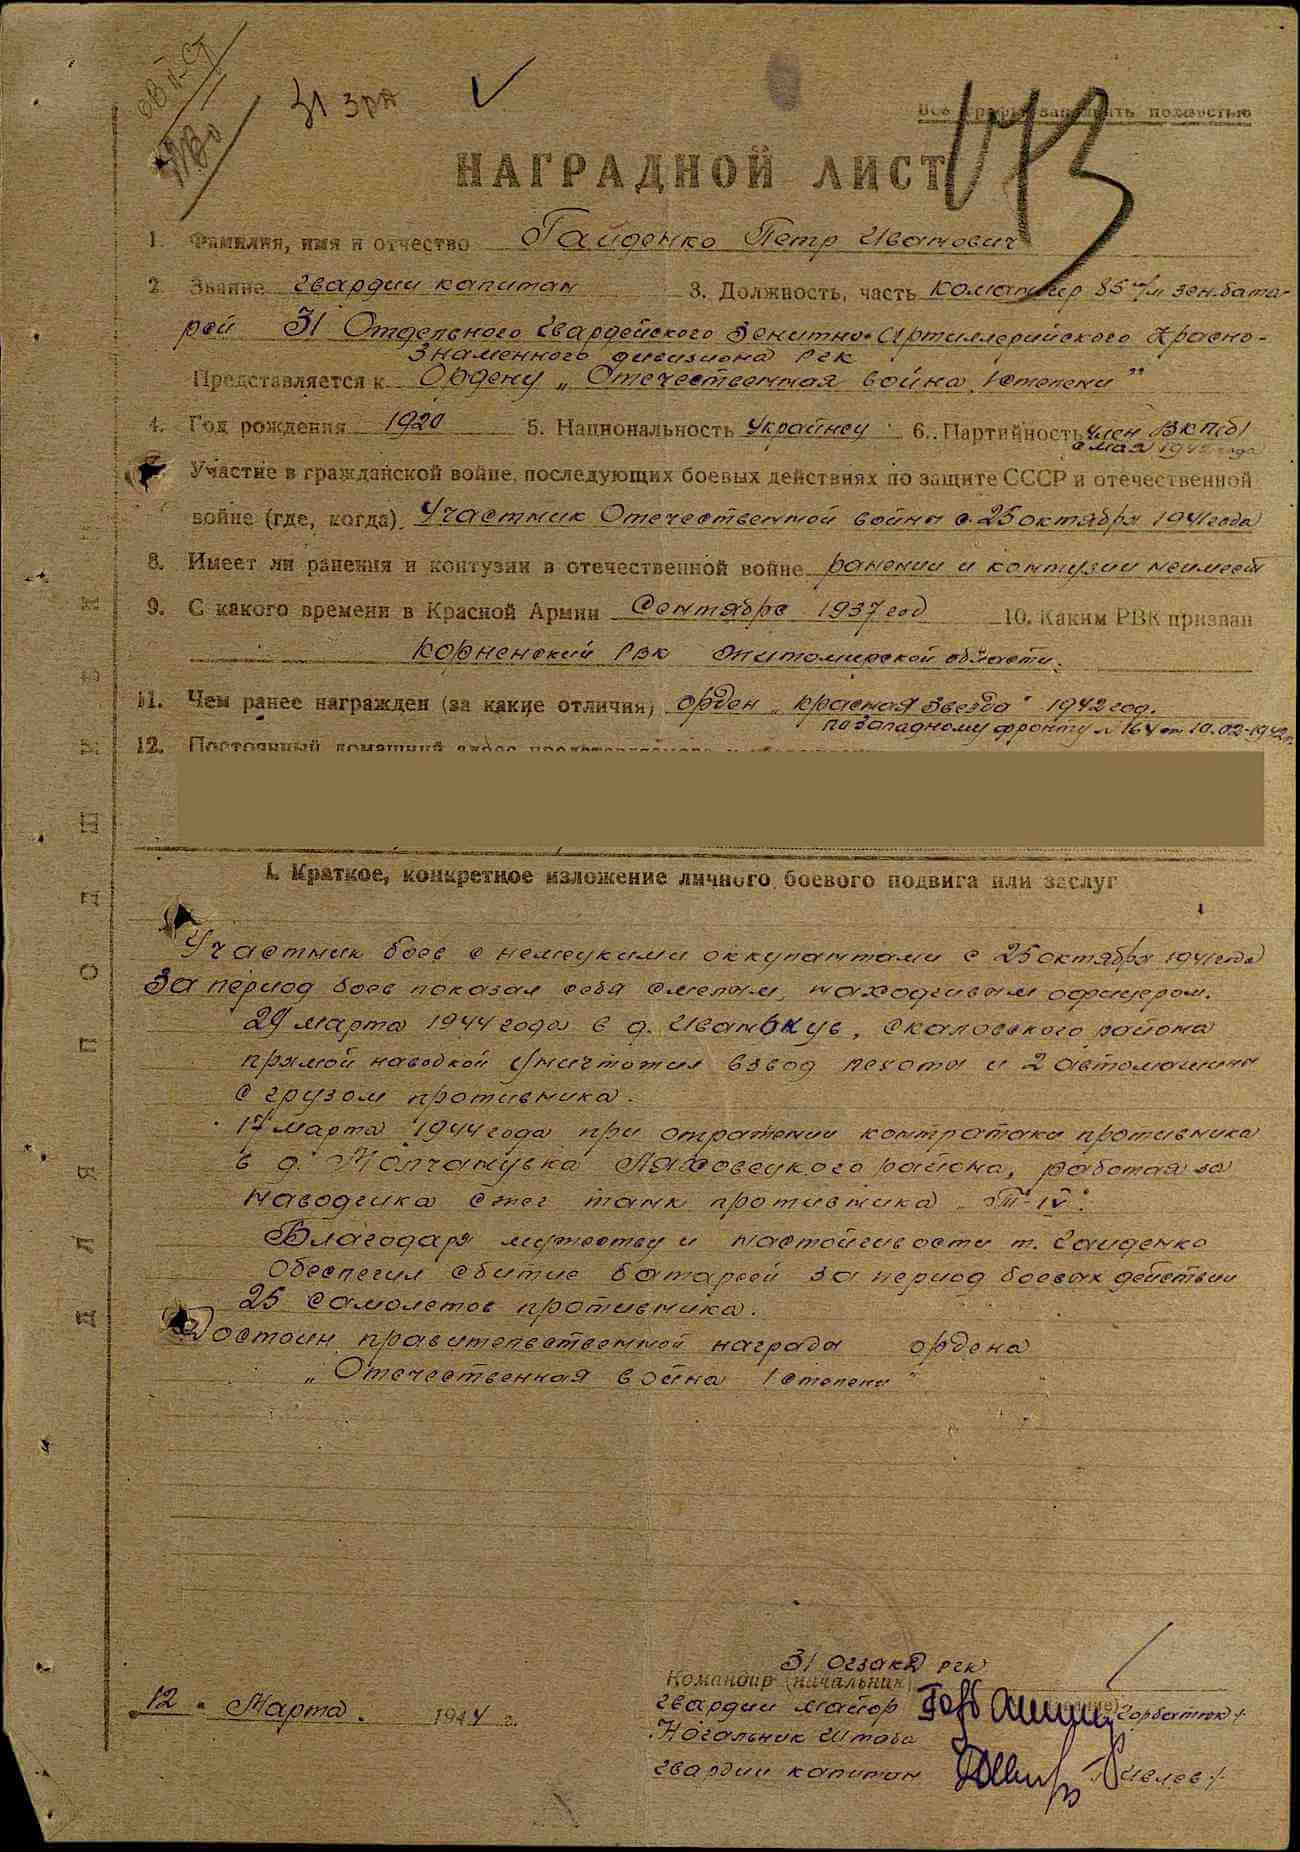 31 зрА
Все графы заполнять полностью
НАГРАДНОЙ ЛИСТ
1. Фамилия, имя и отчество Гайденко Петр Иванович
2. Звание гвардии капитан 3. Должность, часть командир 85 м/м зен.бата-
реи 31 Отдельного Гвардейского Зенитно-Артиллерийского Красно-
знаменного дивизиона РГК
Представляется к Ордену „Отечественная война I степени"
4. Год рождения 1920 5. Национальность Украинец 6. Партийность член ВКП(б)
с мая 1942 года
7. Участие в гражданской войне, последующих боевых действиях по защите СССР и отечественной
войне (где, когда) Участник Отечественной войны с 25 октября 1941 года
8. Имеет ли ранения и контузии в отечественной войне ранении и контузии неимеет
9. С какого времени в Красной Армии Сентябрь 1937 год 10. Каким РВК призван
Корненский РВК Житомирской области.
11. Чем ранее награжден (за какие отличия) орден „красная звезда" 1942 год.
по Западному фронту № 164 от 10.02-1942 г.
12. Постоянный домашний адрес представляемого к
I. Краткое, конкретное изложение личного боевого подвига или заслуг
Участник боев с немецкими оккупантами с 25 октября 1941 года
За период боев показал себя смелым, находчивым офицером.
марта 1944 года в д. района
прямой наводкой уничтожил взвод пехоты и 2 автомашины
с грузом противника.
марта 1944 года при отражении контратаки противника
в д. Ляховецкого района, работая за
наводчика сжег танк противника „Т-IV".
Благодаря мужеству и настойчивости т. Гайденко
обеспечил сбитие батареей за период боевых действии
25 самолетов противника.
Достоин правительственной награды ордена
„Отечественная война I степени"
ДЛЯ ПОДШИВКИ
31 ОГЗАКД РГК
Командир (начальник)
12 „ Марта. 1944 г. гвардии майор /Горбатюк/
Начальник Штаба
гвардии капитан /Ивлев/